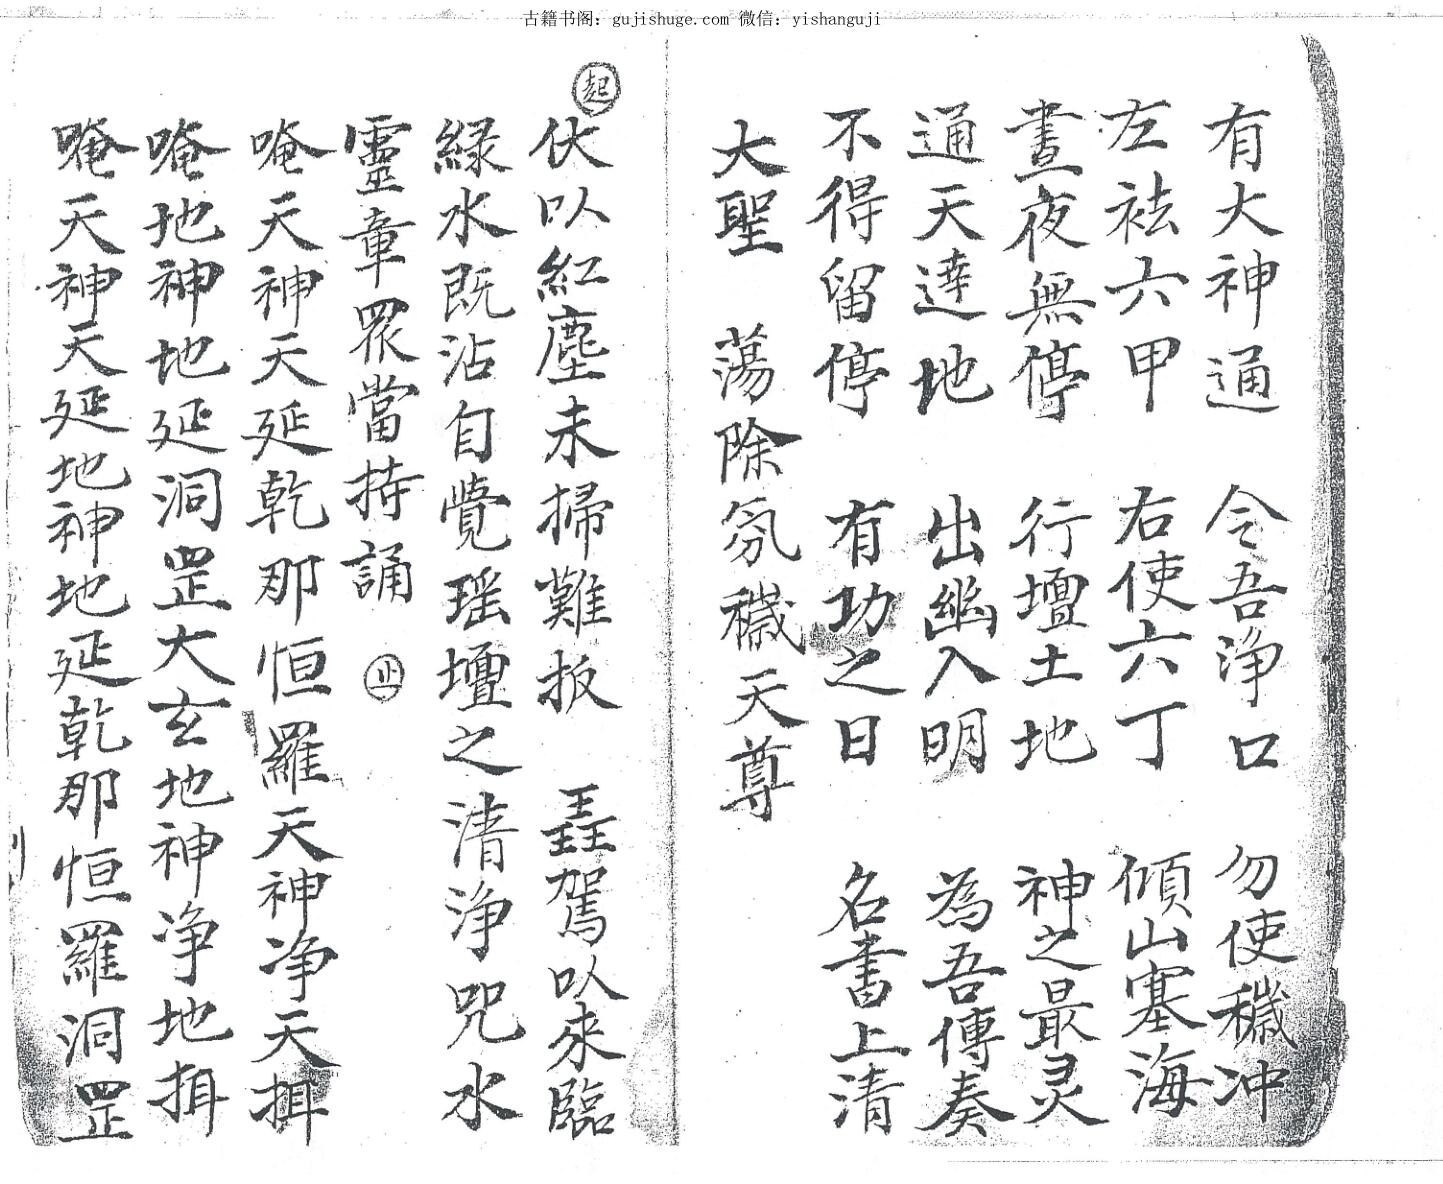 古籍书阁：gujishuge.com 微信：yishanguji
有大神通　令吾净口　勿使穢冲
左祛六甲　右使六丁　傾山塞海
晝夜無停　行壇土地　神之最灵
通天達地　出幽入明　為吾傳奏
不得留停　有功之日　名書上清
大聖　蕩除氛穢天尊
起
伏以紅塵未掃難扳　　駕以來臨
綠水既沾自覺瑶壇之清淨咒水
靈章眾當持誦　止
唵天神天延乾那恒羅天神净天揖
唵地神地延洞罡大玄地神净地揖
唵天神天延地神地延乾那恒羅洞罡